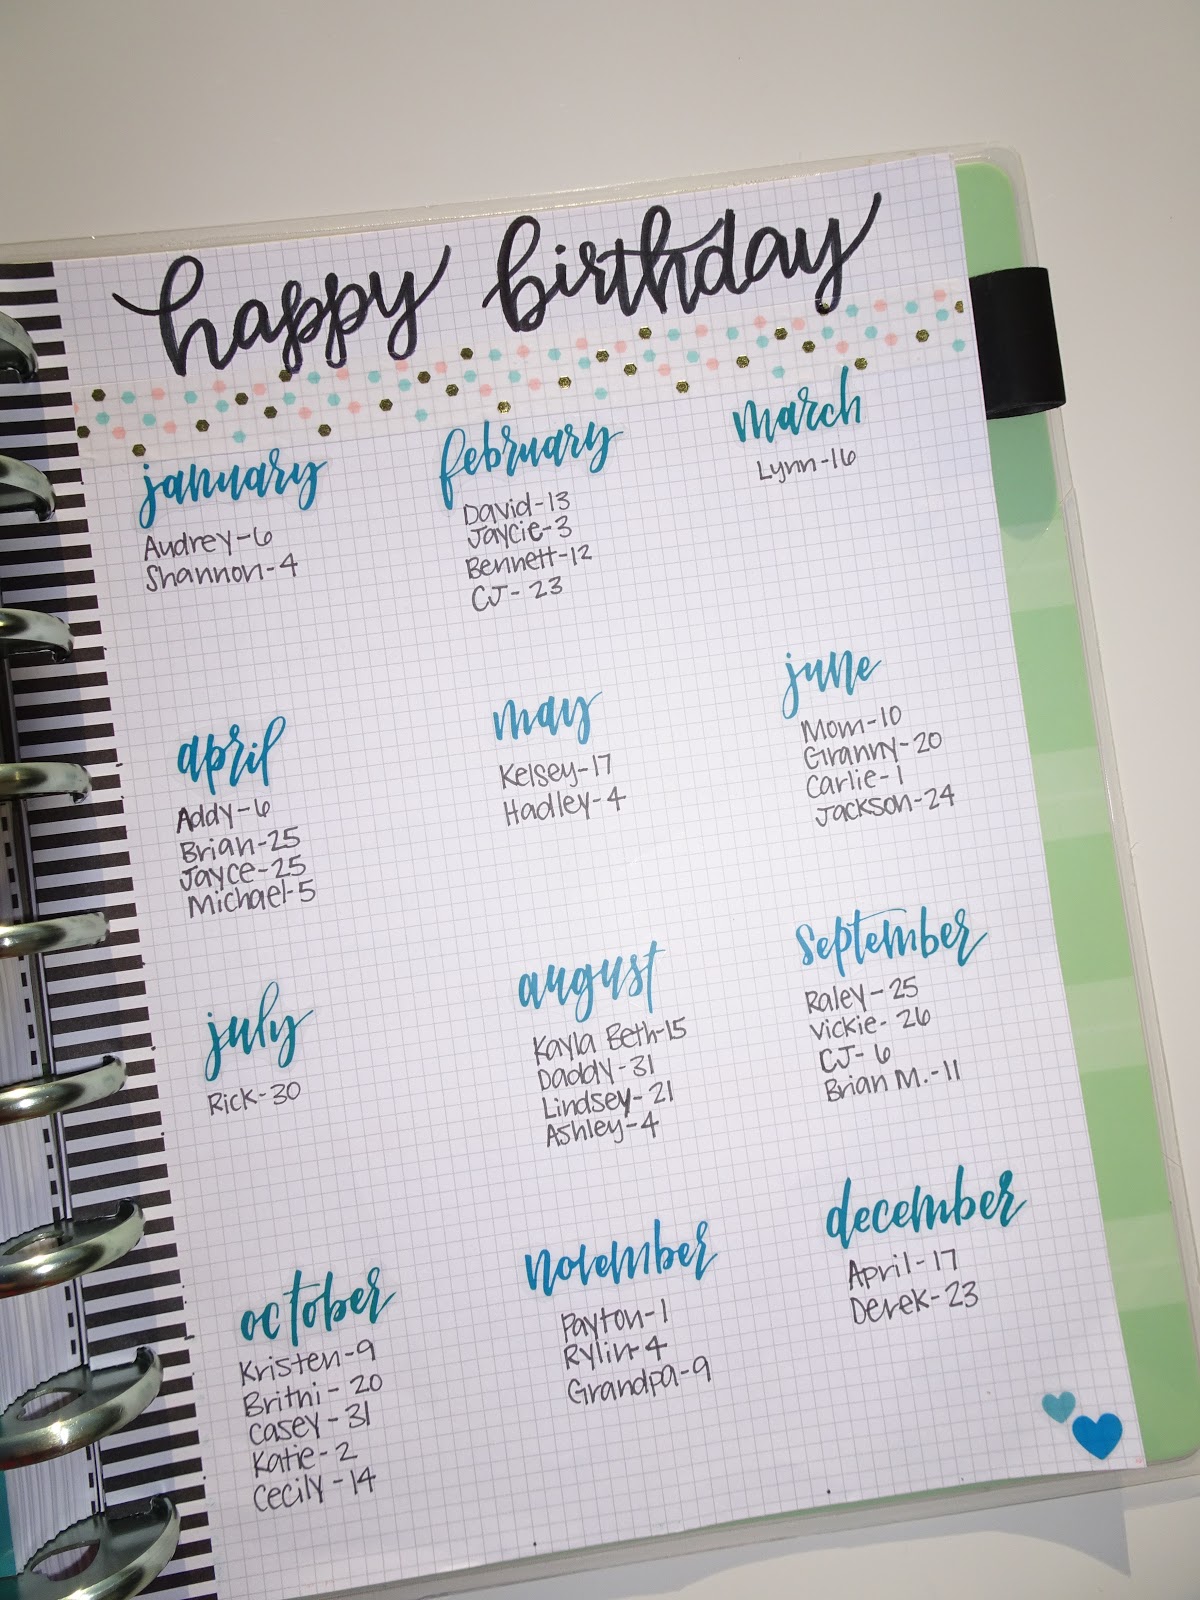 happy birthday
january
Audrey-6
Shannon-4
february
David-13
Jaycie-3
Bennett-12
CJ-23
march
Lynn-16
april
Addy-6
Brian-25
Jayce-25
Michael-5
may
Kelsey-17
Hadley-4
june
Mom-10
Granny-20
Carlie-1
Jackson-24
july
Rick-30
august
Kayla Beth-15
Daddy-31
Lindsey-21
Ashley-4
september
Raley-25
Vickie-26
CJ-6
Brian M.-11
october
Kristen-9
Britni-20
Casey-31
Katie-2
Cecily-14
november
Payton-1
Rylin-4
Grandpa-9
december
April-17
Derek-23